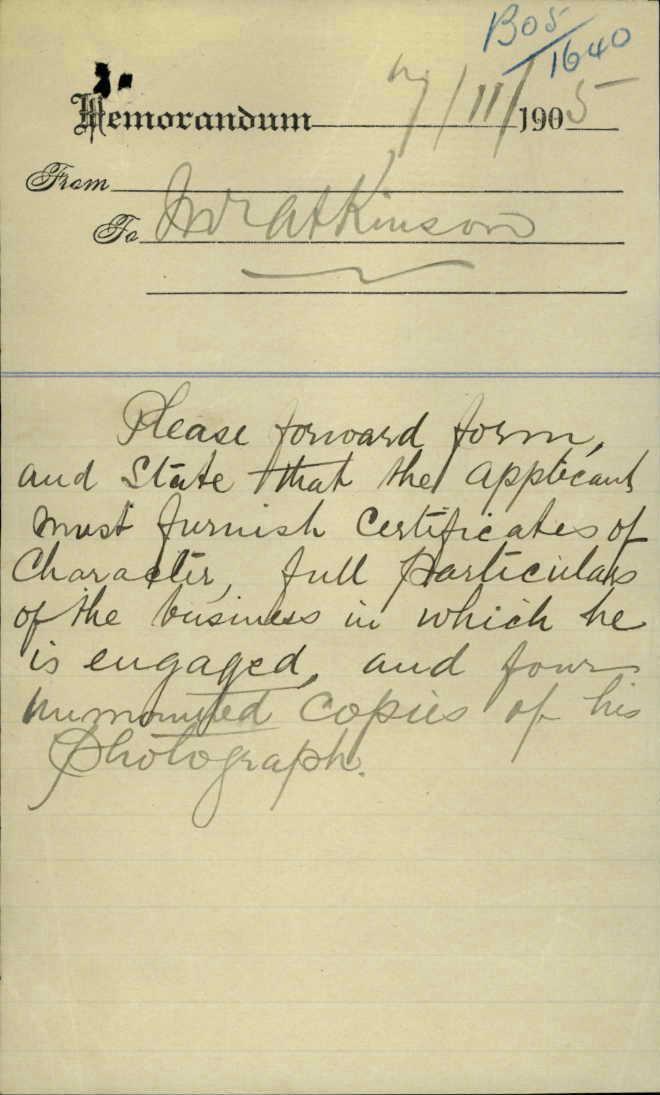 B05/1640
Memorandum 7/11/1905
From
To Mr Atkinson
Please forward form,
and State that the applicant
must furnish Certificates of
Character, full particulars
of the business in which he
is engaged, and four
unmounted copies of his
photograph.